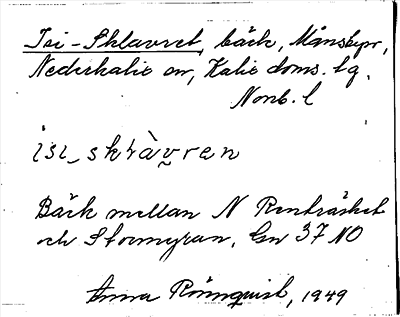 Isi-Sklavret, bäck, Månsbyn,
Nederkalix sn, Kalix doms. tg.
Norrb. l
isi_skràvren
Bäck mellan N Renträsket
och Stormyran. Gn 37 NO
Anna Rönnquist, 1949